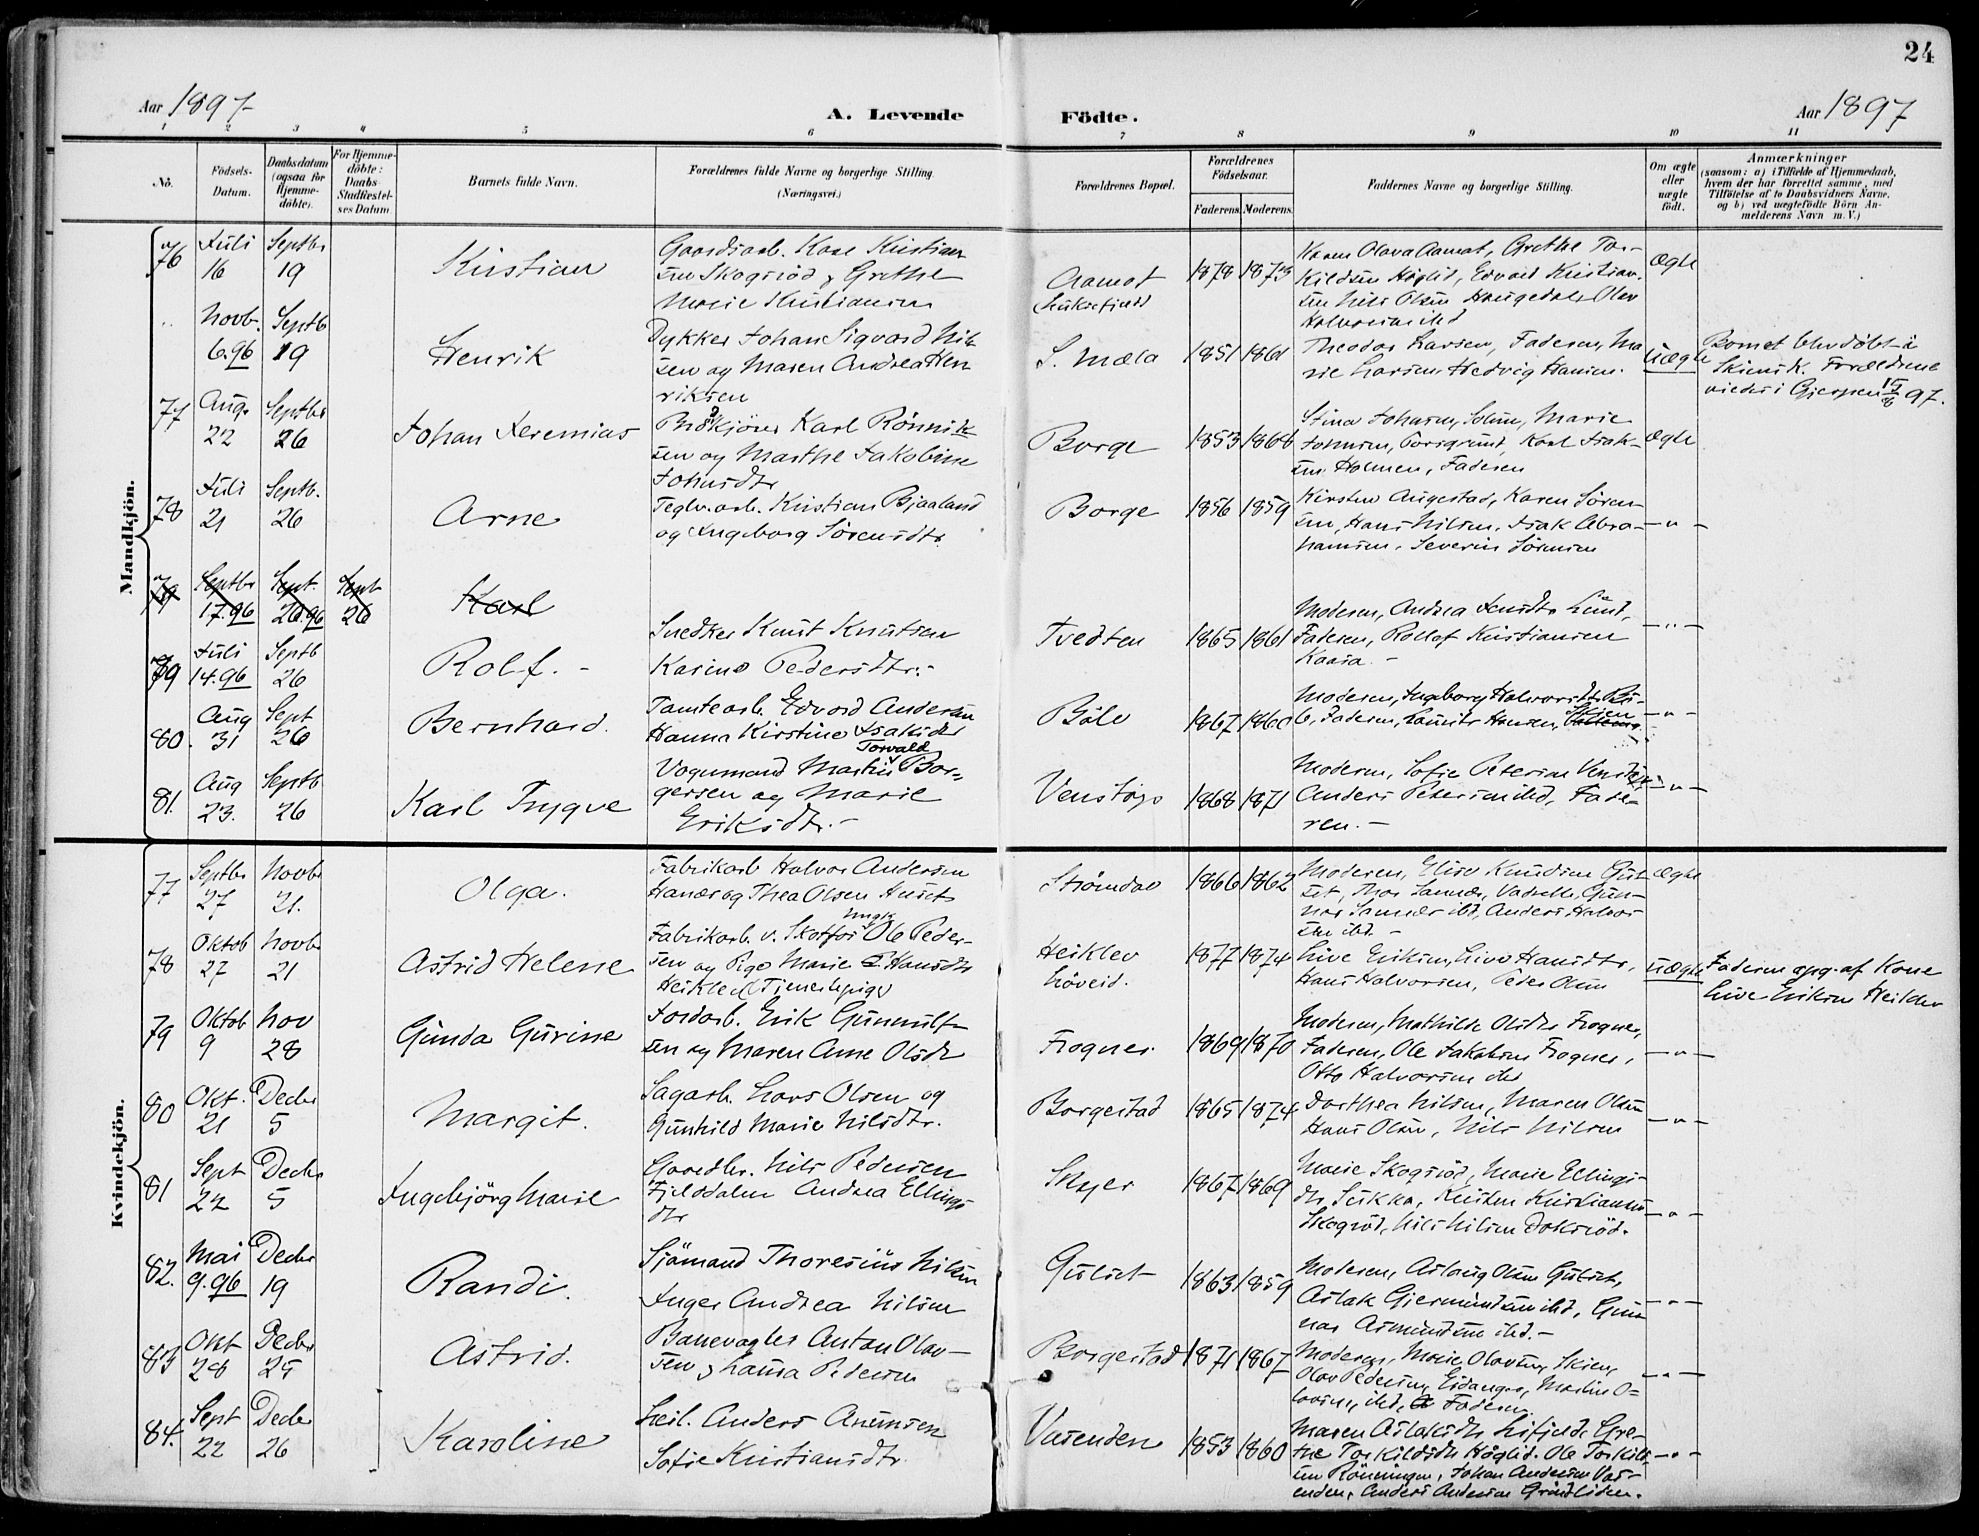 24
Aar 1897
A. Levende Födte.
Aar 1897
1 2 3 4 5 6 7 8 9 10 11
No.
Födsels-Datum.
Daabsdatum (ogsaa for Hjemme-döbte).
For Hjemme-döbte: Daabs-Stadfæstel-ses Datum
Barnets fulde Navn.
Forældrenes fulde Navne og borgerlige Stilling. (Næringsvei.)
Forældrenes Bopæl.
Forældrenes Födselsaar.
Faderens. Moderens.
Faddernes Navne og borgerlige Stilling.
Om ægte eller uægte födt.
Anmærkninger
(saasom: a) i Tilfælde af Hjemmedaab,
hvem der har forrettet samme, med
Tilföielse af to Daabsvidners Navne,
og b) ved uægtefödte Börn An-
melderens Navn m. V.)
Mandkjön.
76 Juli 16 Septbr 19 Kristian
Gaardsarb. Kristian
sen Skogsröd og Grethe
Marie Kristiansen
Aamot
1878 1873
Karen Olava Aamot, Grethe Tor-
kildsen Höglid, Edvard Kristian-
sen, Nils Olsen Haugedal, Olav
Halvorsen ibid
Ægte
Novb. 6.96 Septb 19 Henrik
Dykker Johan Sigvard Nil-
sen og Maren Andrea Hen
riksen
S. Mæla
1851 1861
Theodor Larsen, Faderen, Ma
rie Larsen, Hedvig Hansen.
Uægte
Barnet blev döbt i
Skien K. Forældrene
viedes i Gjerpen 97.
77 Aug. 22 Septbr 26 Johan Jeremias
Karl Rönnik
sen og Marthe Jakobine
Johnsdtr
Borge
1853 1868
Stina Johnsen, Solum, Marie
Johnsen, Porsgrund, Karl Isak-
sen Holmen, Faderen
Ægte
78 Juli 21 Septb. 26 Arne
Teglv.arb. Kristian Bjaaland
og Ingeborg Sörensdtr.
Borge
1856 1859
Kirsten Augestad, Karen Sören-
sen, Hans Nilsen, Isak Abra-
hamsen, Severin Sörensen
– " –
79 Septbr 17.96 Sept. 20.96 Sept 26 Karl
79 Juli 14.96 Septb 26 Rolf. -
Snedker Knut Knutsen
Karine Pedersdtr. -
Tvedten
1865 1861
Moderen, Andrea Lund,
Faderen, Rolf Kristiansen
Kaasa. -
– " –
80. Aug 31 Sept 26 Bernhard.
Tomtearb. Edvard Andersen
Hanna Kirstine Isaksdtr
Böle
1867 1860
Moderen, Ingeborg Halvorsdtr Bö-
le, Faderen, Lauritz Hansen, Skien
– " –
81. Aug 23. Septb 26 Karl Trygve
Torvald
Vognmand Martin Bor-
gersen og Marie
Eriksdtr. -
Venstöp
1868 1871
Moderen, Sofie Petersen Venstöp
Anders Petersen ibid, Fade-
ren. -
– " –
Kvindekjön.
77 Septbr 27 Novbr 21. Olga.
Fabrikarb Halvor Andersen
og Thea Olsen
Strömdal
1866 1862
Moderen, Elise Knudsen
Gun-
nar ibd, Anders Halvor
sen ibd. -
Ægte
78 Oktob 27 Novbr 21 Astrid Helene
Fabrikarb. v. Skotfos Ungk. Ole Peder-
sen og Pige Marie Hansdtr
Heiklev (Tjenestepige)
Heiklev
Löveid.
1877 1874
Live Eriksen, Live Hansdtr,
Hans Halvorsen, Peder Olsen
Uægte
Faderen opg. af Kone
Live Eriksen Heiklev
79 Oktob 9 Nov 28 Gunda Gurine
Jordarb. Erik Gunnulf-
sen og Maren Anne Olsdtr
Frogner.
1869 1870
Moderen, Mathilde Olsdtr Frogner,
Faderen, Ole Jakobsen Frogner,
Otto Halvorsen ibd
– " –
80 Okt. 21 Decbr 5 Margit.
Sagarb. Lars Olsen og
Gunhild Marie Nilsdtr.
Borgestad
1865 1874
Dorthea Nilsen, Maren Olsen
Hans Olsen, Nils Nilsen
– " –
81 Sept 22 Decbr 5 Ingebjörg Marie
Gaardbr. Nils Pedersen
Fjelddalen Andrea Ellings
dtr
Skyer
1867 1869
Marie Skogsröd, Marie Ellings-
dtr, Kristen Kristiansen
Skogsröd, Nils Nilsen
– " –
82. Mai 9.96 Decbr 19 Randi.
Sjömand Thoresius Nilsen
Inger Andrea Nilsen
Gulset
1863 1859
Moderen, Aslaug Olsen Gulset,
Aslak Gjermundsen ibd, Gun
nar Asmundsen ibd. -
– " –
83 Okt 28 Decbr 25 Astrid.
Banevogter Anton Olav-
sen og Laura Pedersen
Borgestad
1871 1867
Moderen, Marie Olavsen, Skien,
Olav Pedersen, Eidanger, Martin O=
lavsen, ibd, Faderen
– " –
84. Sept 22 Decbr 26 Karoline
Leil. Anders Anunsen
Sofie Kristiansdtr.
Vaaenden
1853 1860
Maren Aslaksdtr Lifjeld, Gre-
the Torkildsdtr Höglid. Ole Torkild-
sen Rönningen, Johan Andersen Vaa-
enden, Anders Andersen Grindliden.
– " –